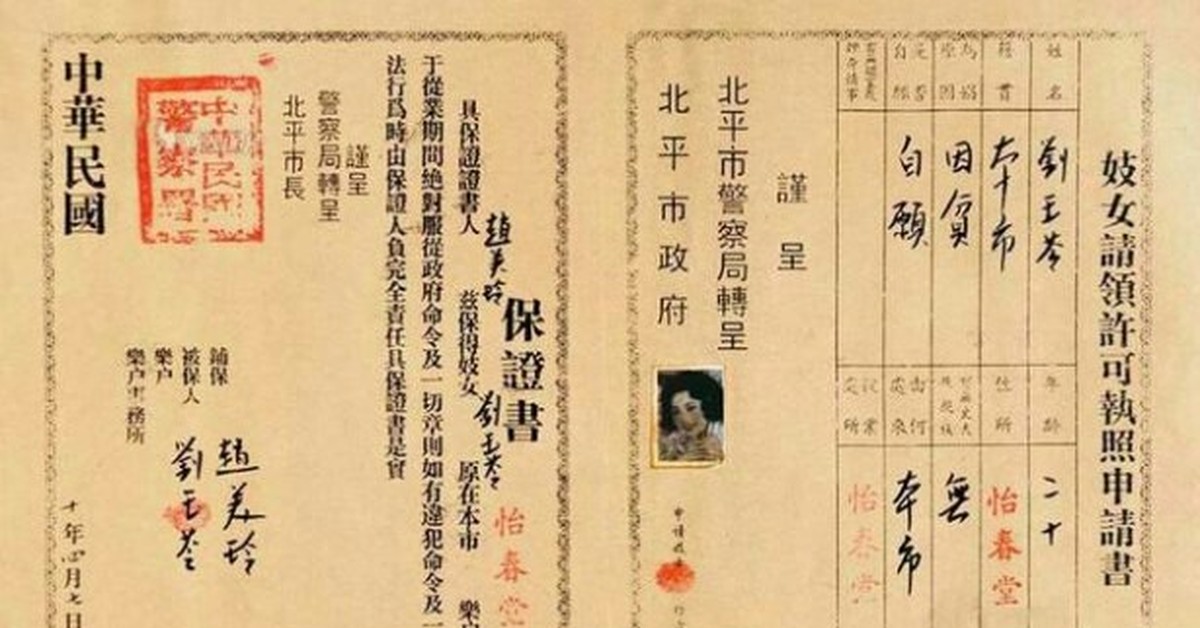 妓女請領許可執照申請書
姓名 劉玉苓 年齡 二十
籍貫 本市 住所 怡春堂
為娼原因 因貧 無
是否自願 自願 由何處來 本市
執業處所 怡春堂
謹呈
北平市警察局轉呈
北平市政府
保證書
具保證書人 趙美玲 茲保得妓女 劉玉苓 原在本市 怡春堂 樂户
于從業期間絶對服從政府命令及一切章則如有違犯命令及
法行爲時由保證人負完全責任具保證書是實
謹呈
警察局轉呈
北平市長
鋪保 趙美玲
被保人 劉玉苓
樂户
樂户事務所
中華民國
十年四月七日